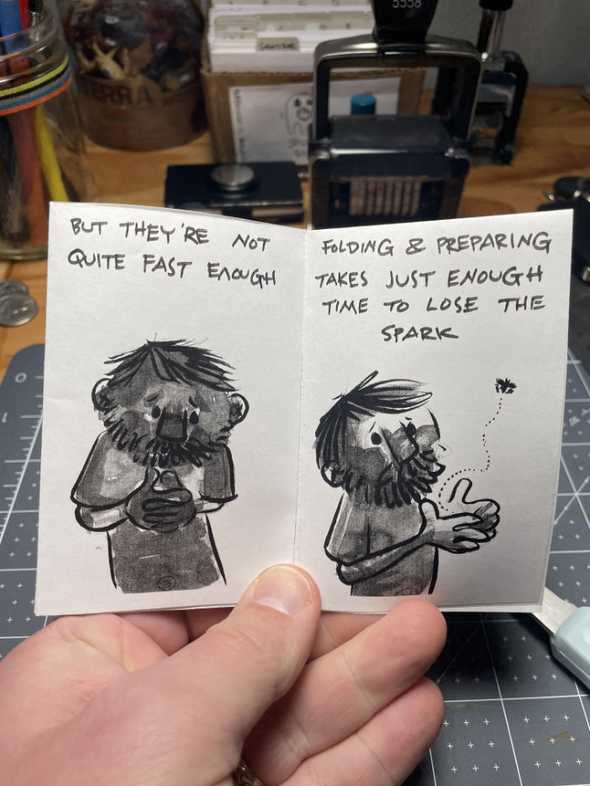 BUT THEY'RE NOT
QUITE FAST ENOUGH
FOLDING & PREPARING
TAKES JUST ENOUGH
TIME TO LOSE THE
SPARK
TERRA
5558
0